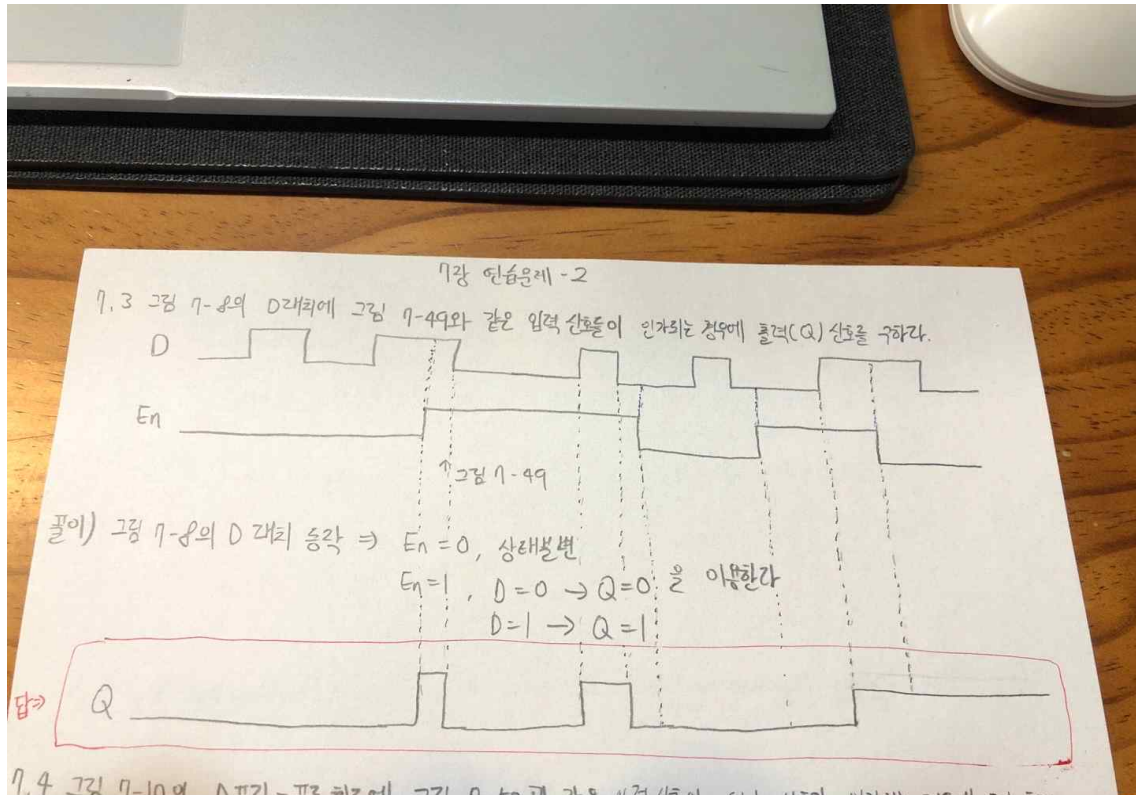 7장 연습문제 -2
7.3 그림 7-8의 D래치에 그림 7-49와 같은 입력 신호들이 인가되는 경우에 출력(Q) 신호를 구하라.
D
En
↑그림 7-49
풀이) 그림 7-8의 D 래치 동작 ⇒ En=0, 상태불변
En=1, D=0 → Q=0 을 이용한다
D=1 → Q=1
답⇒ Q
7.4 그림 7-10의